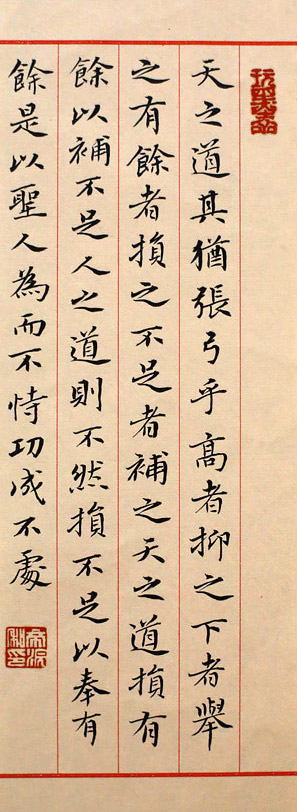 天之道其猶張弓乎高者抑之下者舉
之有餘者損之不足者補之天之道損有
餘以補不足人之道則不然損不足以奉有
餘是以聖人為而不恃功成不處